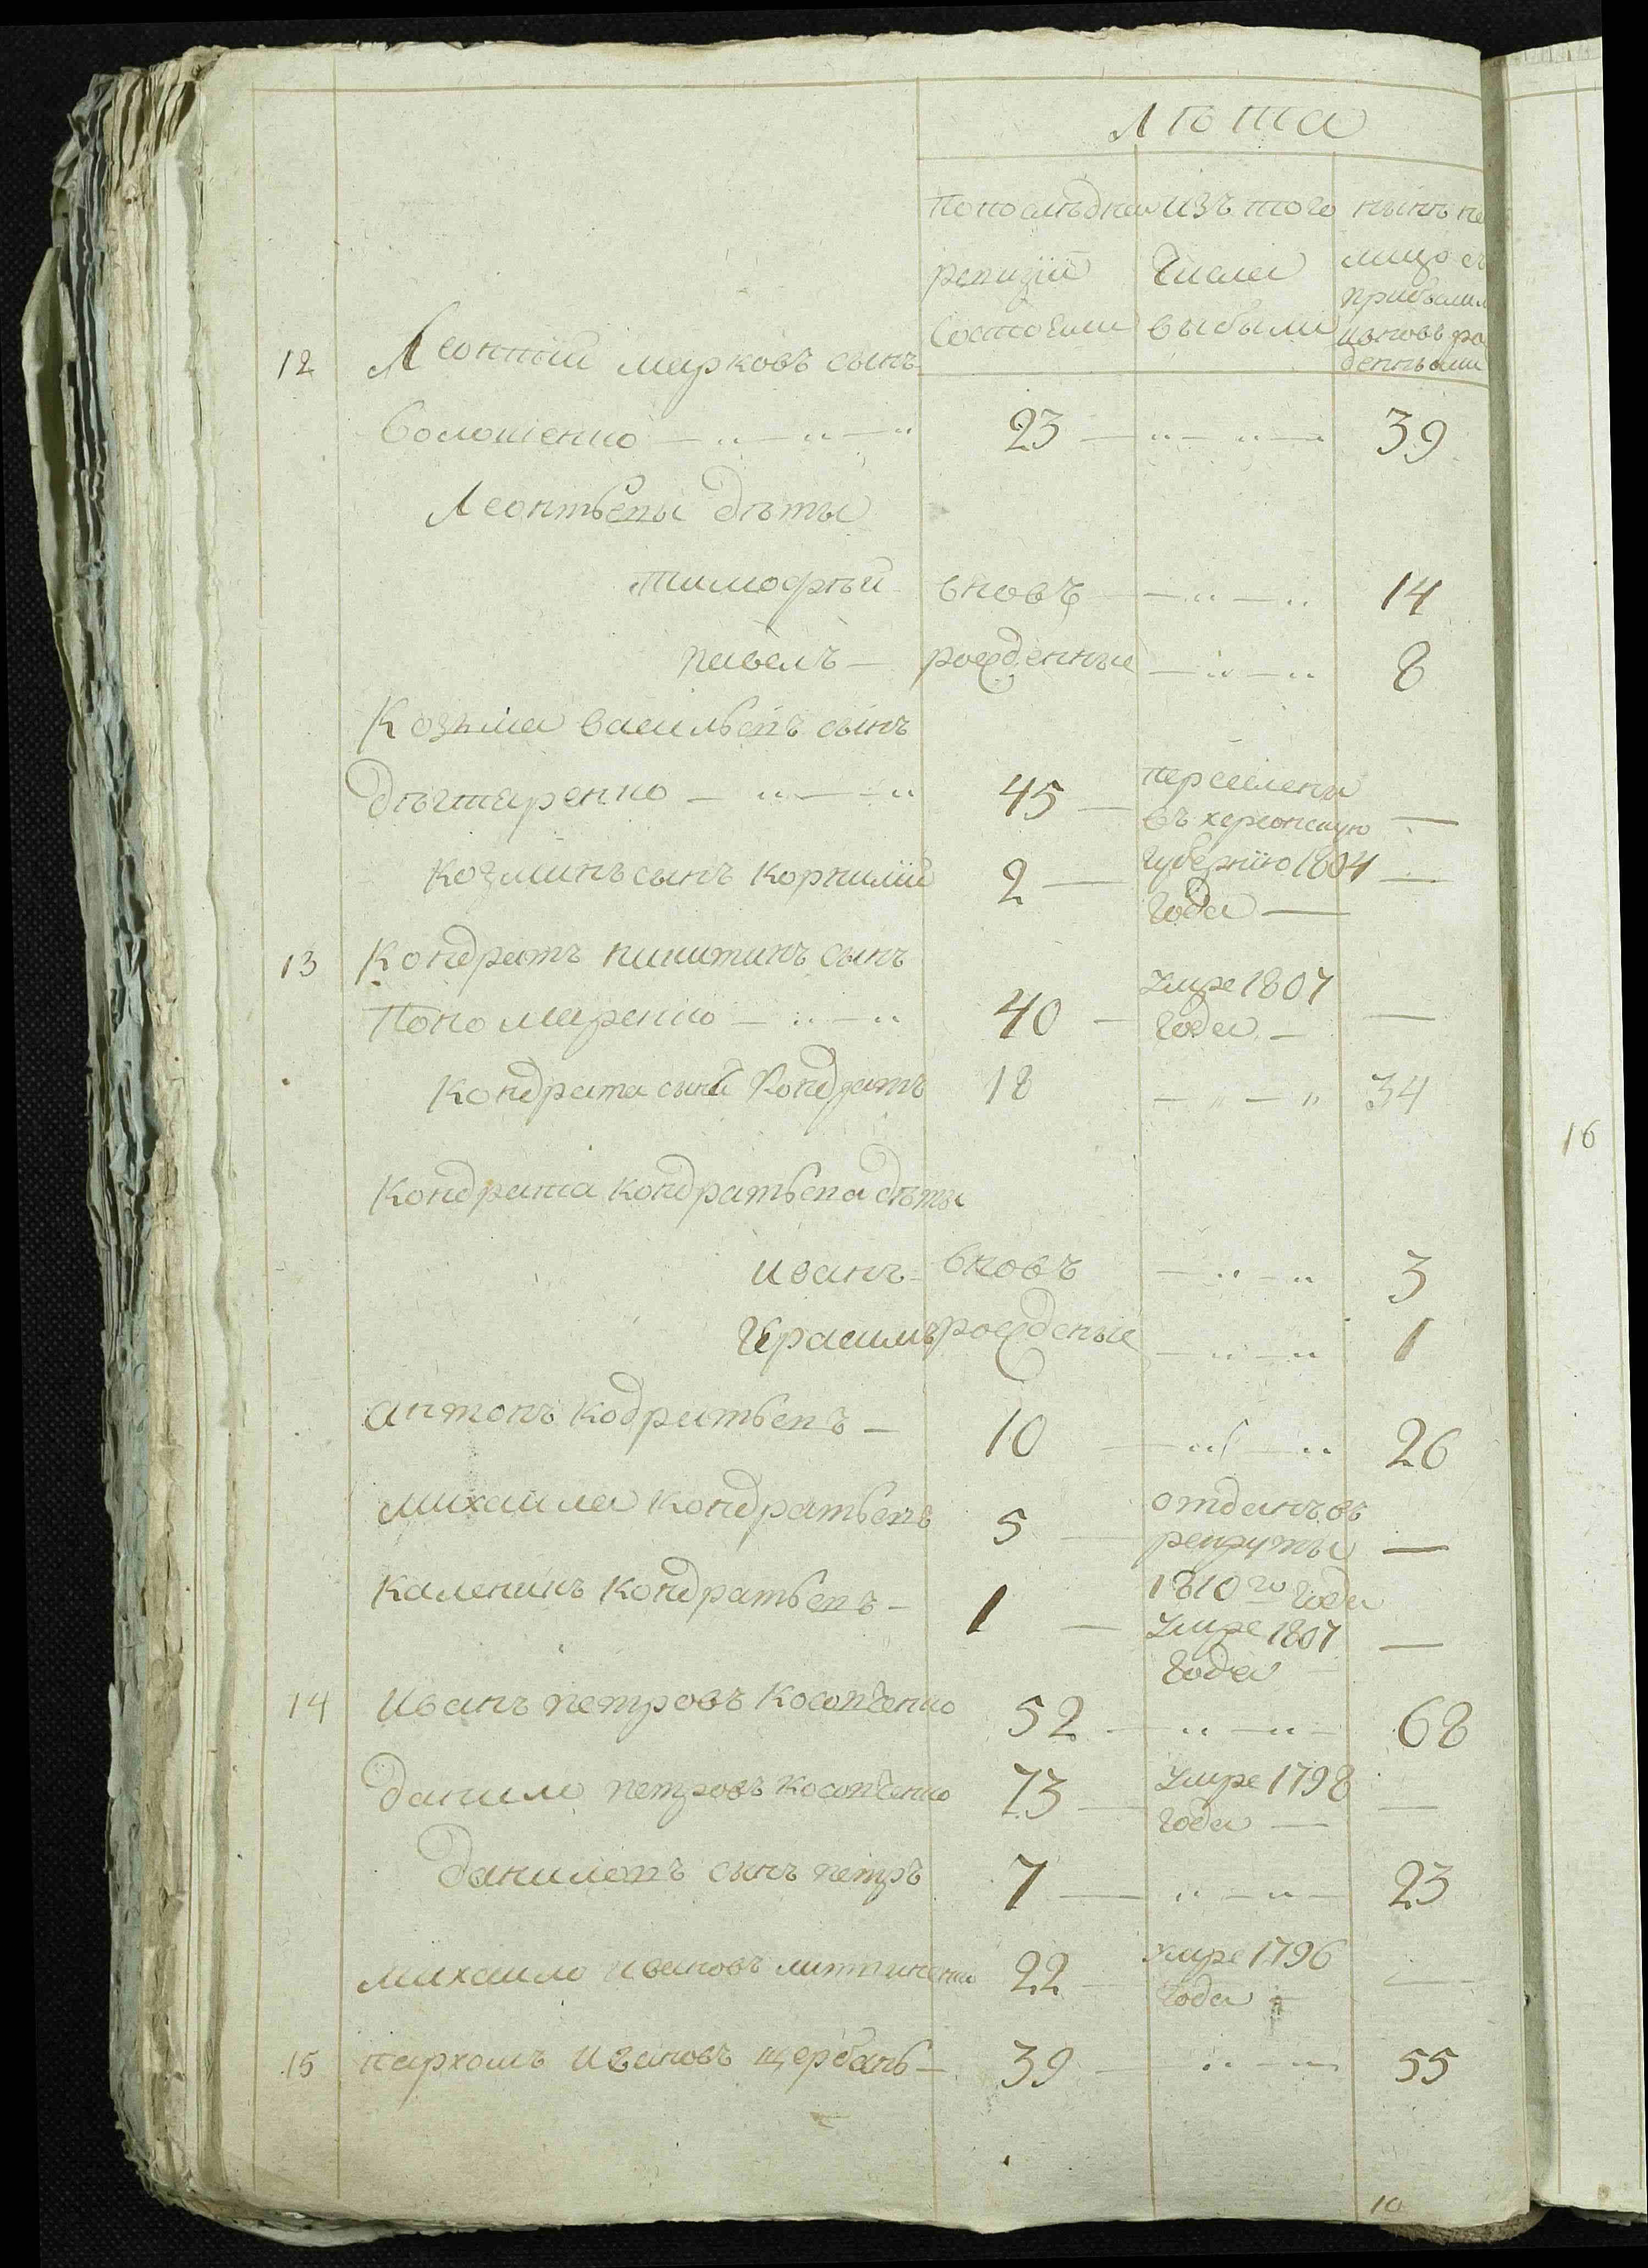 Лѣта
По послѣдней
ревизiи
Состоѣли
изъ того
Числа
выбыли
нынѣ на
лицо съ
прибылим
ивновь ро
денными
12 Леонтий марковъ сынъ
Волошенко 23 39
Леонтьевы дѣты
тимофѣй вновъ 14
павелъ рожденные 8
Козма васильевъ сынъ
Дѣгтяренко 45 переселены
въ херсонскую
Козминъ сынъ корнилий 2 Губернию 1804
Года
13 Кондратъ никитинъ сынъ
Пономаренко 40 Умре 1807
Года
Кондрата сынъ Кондратъ 18 34
Кондрата кондратьева дѣты
иванъ вновъ 3
Герасимъ рожденые 1
антонъ кодратьевъ 10 26
михаила кондратьевъ 5 отданъ въ
рекруты
1810го Года
Каленикъ кондратьевъ 1 Умре 1807
Года
14 Иванъ петровъ Косовченко 52 68
данило петровъ Косовченко 73 Умре 1798
Года
даниловъ сынъ петръ 7 23
михаило ивановъ 22 Умре 1796
Года
15 пархомъ ивановъ щербань 39 55
10
16